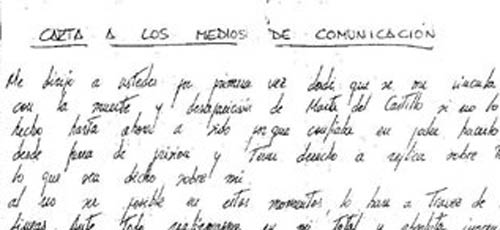 CARTA A LOS MEDIOS DE COMUNICACIÓN
Me dirijo a ustedes por primera vez desde que se me vincula
con la muerte y desaparición de Marta del Castillo si no lo
hecho hasta ahora a sido porque confiaba en poder hacerlo
desde fuera de prision y tener derecho a replica sobre
lo que sea dicho sobre mi
al no ser posible en estos momentos, lo hago a traves de
Ante todo en mi total y absoluta